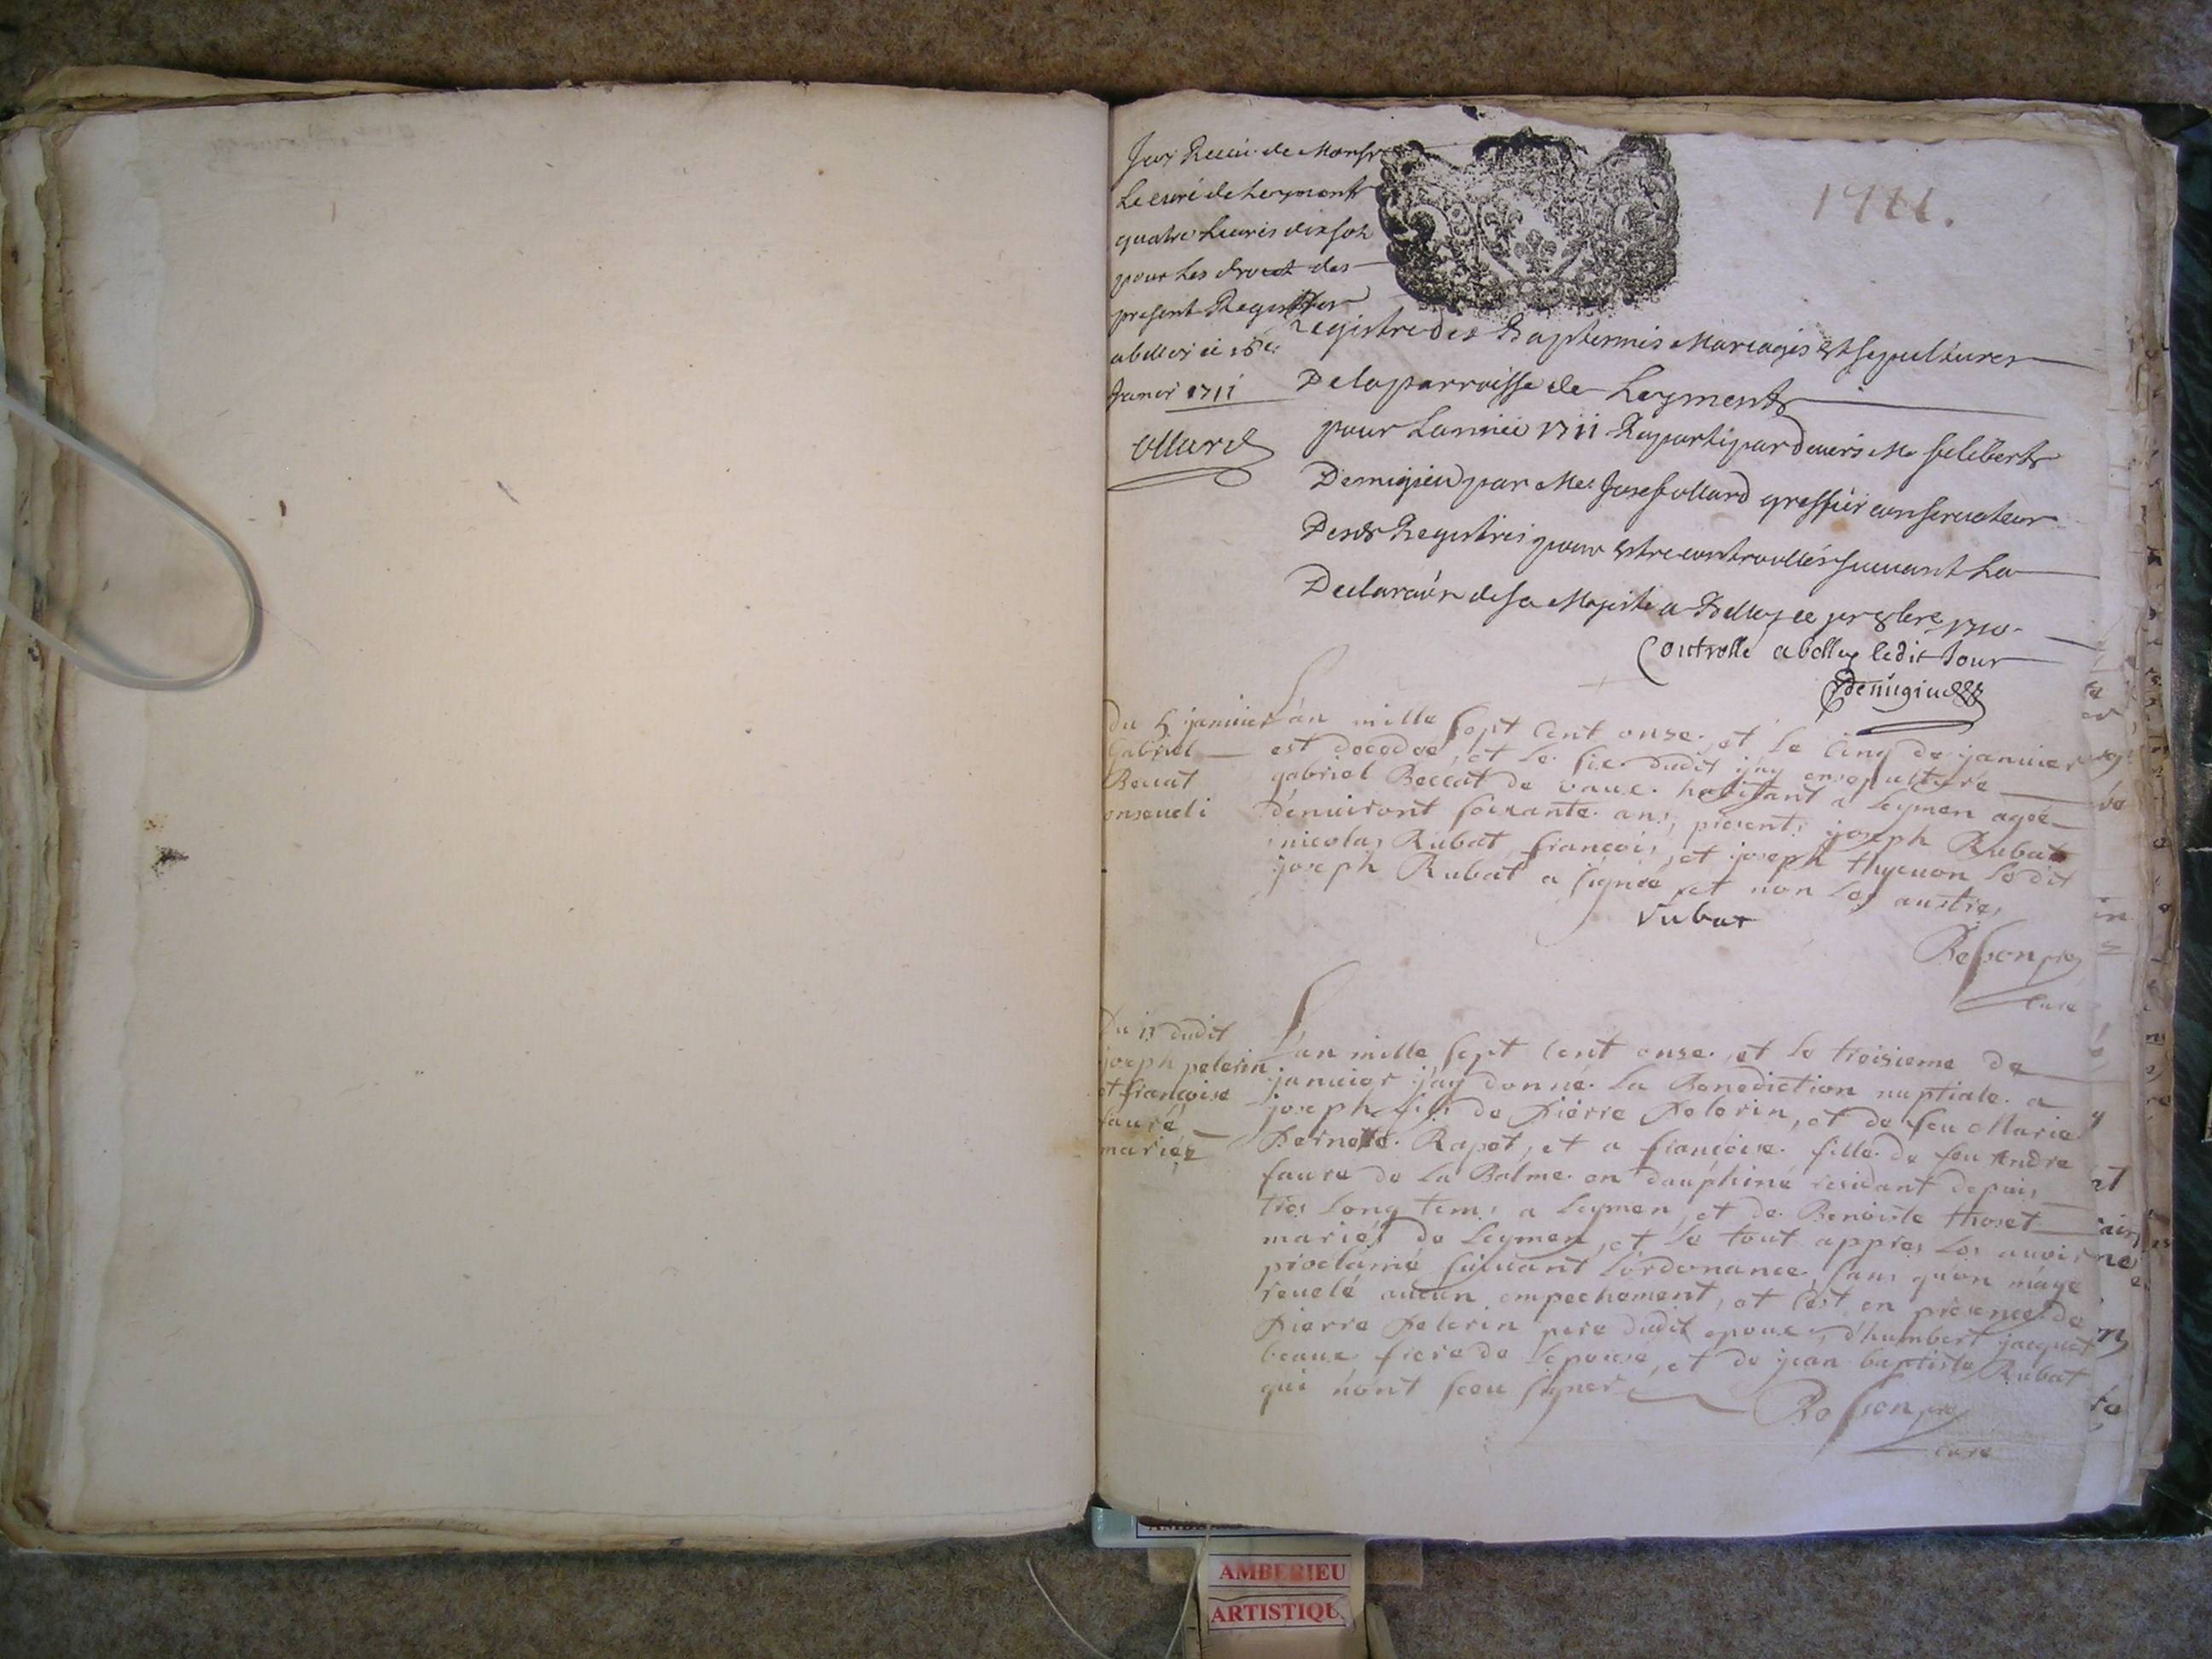 1711.
Jay Receu de Monsr
Le curé de Leyment
quatre Liures dix sols
pour Les droit des
present Registres
a belley ce 18e
Januier 1711
Ollard
Registre des Baptesmes Mariages Et sepultures
De la parroisse de Leyment
pour Lannée 1711 Reparti par deuers Me filibert
Demigieu par Me Josef ollard greffier conseruateur
Desds Registres pour Estre controllés suiuant La
Declaraõn de sa Majesté a Belley ce pr 8bre 1710
Controllé a belley ledit Jour
Demigieu
Du 5 januier
Gabriel
Beccat
enseueli
L'an mille sept cent onze, et le cinq de januier
est decedé, et le six dudit j'ay ensepulturé
gabriel Beccat de vaux habitant a Leymen agée
d'enuiront soixante ans, presents joseph Rubat
nicolas Rubat, francois, et joseph thyeuon Ledit
joseph Rubat a signée et non les austres
Rubat
Besson pre
curé
Du 13 dudit
joseph pelerin
et francoise
fauré
mariéz
L'an mille sept cent onze, et le troisieme de
januier j'ay donné La Benediction nuptiale a
joseph fils de Pierre Pelerin, et de feu Marie
Pernete Rapet, et a francoise fille de feu Andre
faure de La Balme en dauphiné residant depuis
tres long tems a Leymen, et de Benoiste thoset
mariés de Leymen, et le tout appres les auoir
proclamé suiuant L'ordonance, sans qu'on m'aye
reuelé aucun empechement, et c'est en presence de
Pierre Pelerin pere dudit epoux, d'humbert jacquet
beaux frere de L'epouse, et de jean baptiste Rubat
qui n'ont sceu signer
Besson pre
curé
AMBERIEU
ARTISTIQU